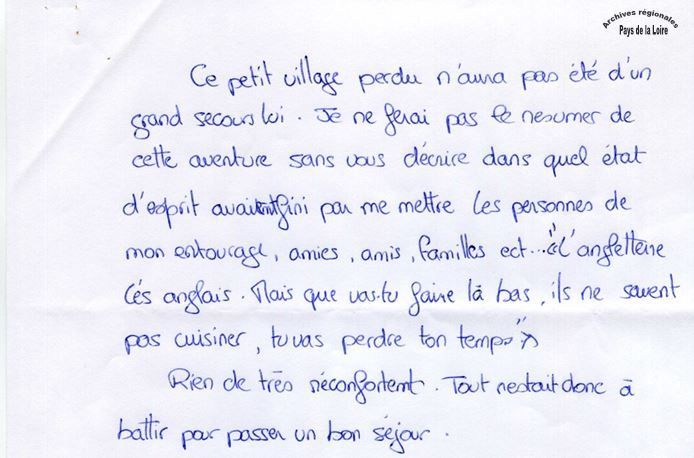 Archives régionales
Pays de la Loire
Ce petit village perdu n'aura pas été d'un
grand secours lui. Je ne ferai pas le resumer de
cette aventure sans vous décrire dans quel état
d'esprit avaient fini par me mettre les personnes de
mon entourage, amies, amis, familles ect... "l'angleterre
Lés anglais. Mais que vas-tu faire là bas, ils ne savent
pas cuisiner, tu vas perdre ton temps"
Rien de très réconfortent. Tout restait donc à
battir pour passer un bon séjour.